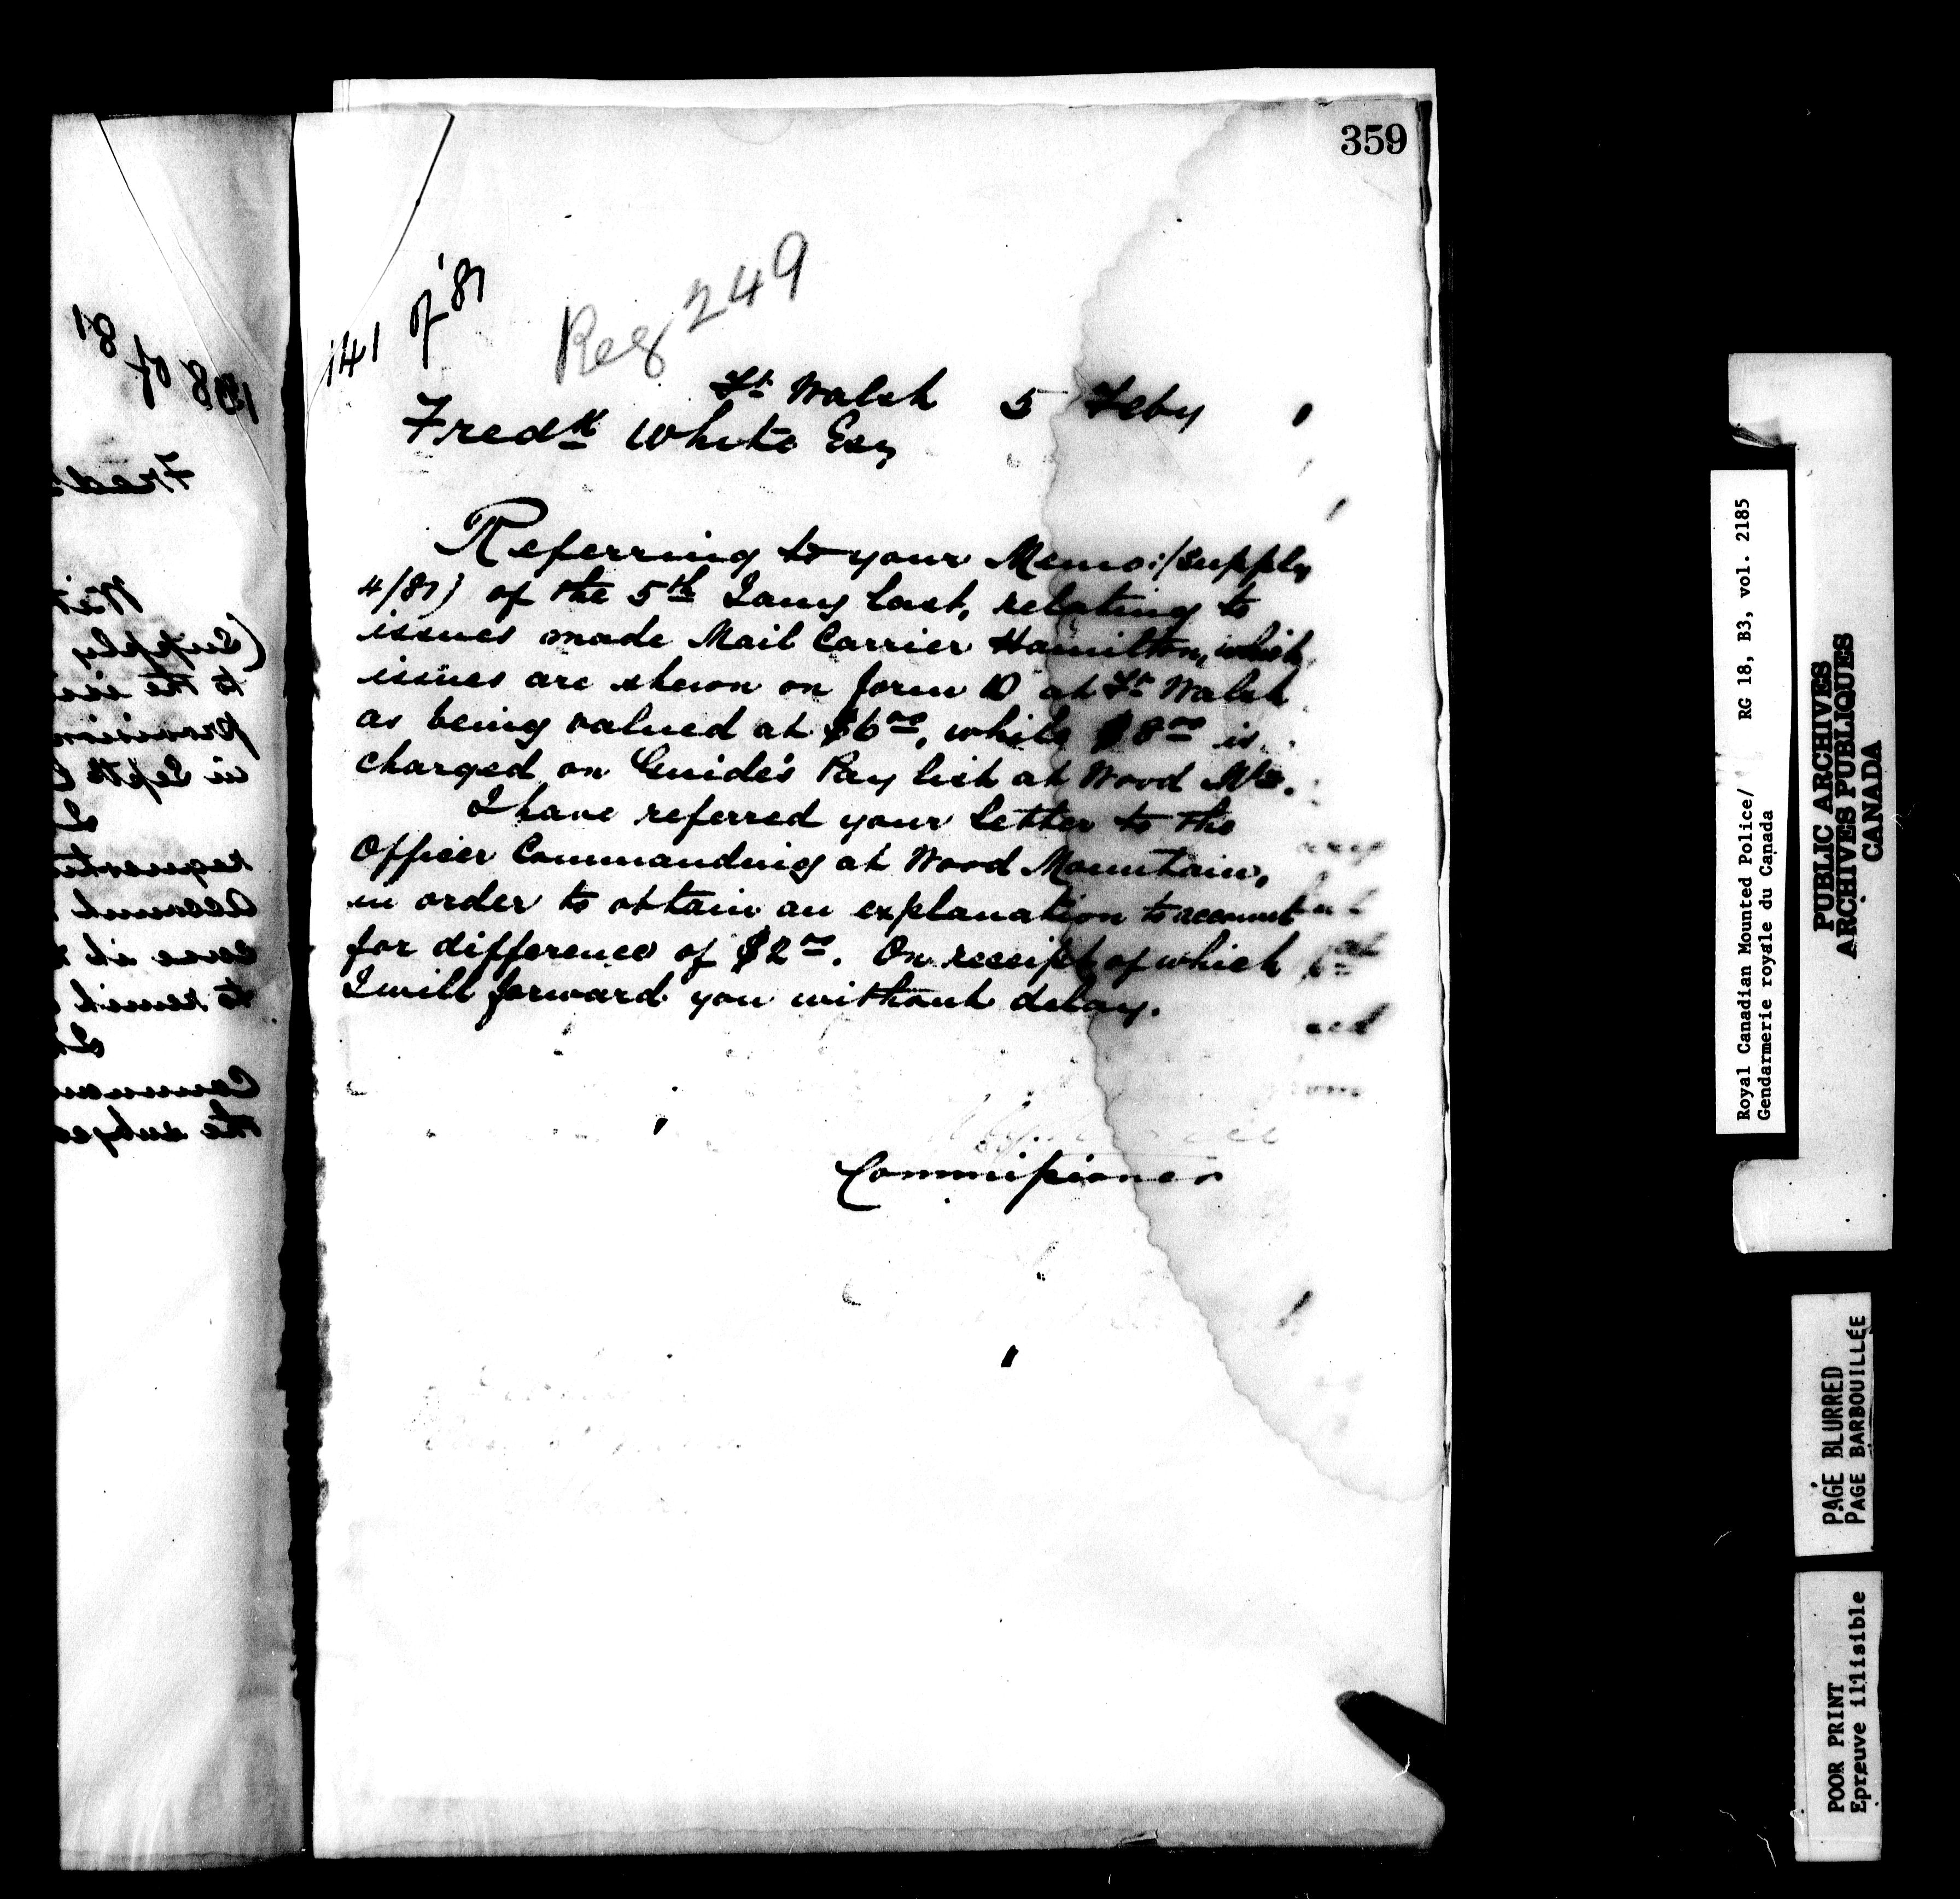 359
141 of '81
Reg 249
Ft. Walsh 5 Feby
Fredk White Esq
Referring to your Memo: (Supply
4/81) of the 5th Jany last, relating to
issues made Mail Carrier Hamilton, which
issues are shewn on form D at Ft Walsh
as being valued at $6.00, while $8.00 is
charged on Guide's Pay list at Wood Mn.
I have referred your letter to the
Officer Commanding at Wood Mountain,
in order to obtain an explanation to account
for difference of $2.00. On receipt of which
I will forward you without delay.
Commissioner
138 of 81
Fred
(Supply
to the
provision
in Sept
to remit
the
Royal Canadian Mounted Police/ RG 18, B3, vol. 2185
Gendarmerie royale du Canada
PUBLIC ARCHIVES
ARCHIVES PUBLIQUES
CANADA
PAGE BLURRED
PAGE BARBOUILLÉE
POOR PRINT
Epreuve illisible